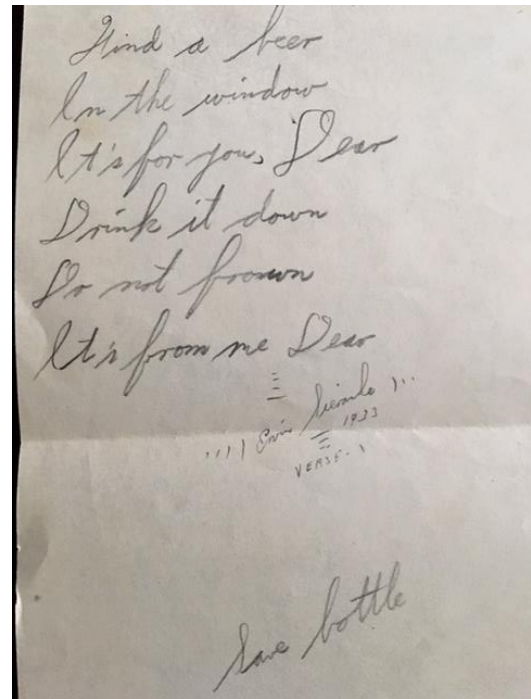 Find a beer
In the window
It's for you, Dear
Drink it down
Do not frown
It's from me Dear
1933
VERSE. 1
Save bottle